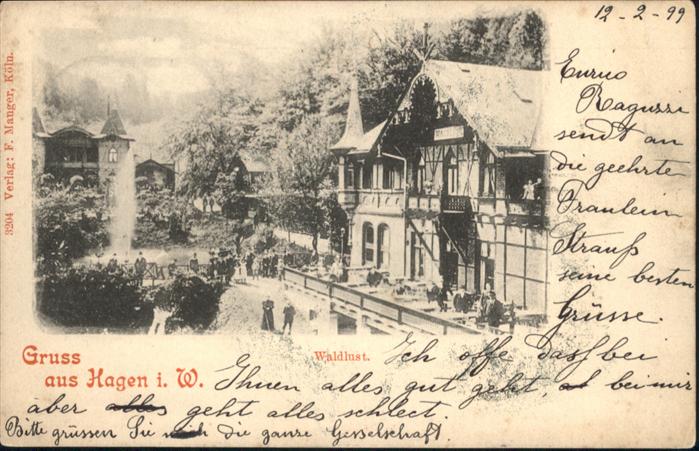 12-2-99
Enrico
Raguzzi
sendt an
die geehrte
Fraulein
Strauß
seine besten
Grüsse.
3204 Verlag: F. Manger, Köln.
Gruss
aus Hagen i. W.
Waldlust.
Ich offe dass bei
Ihnen alles gut geht, bei mir
aber alles geht alles schlect.
Bitte grüssen Sie mich die ganze Gesselschaft.